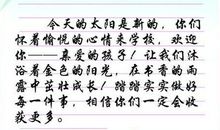 今天的太阳是新的，你们
怀着愉悦的心情来学校，欢迎
你——亲爱的孩子！让我们沐
浴着金色的阳光，在书香的雨
露中茁壮成长！踏踏实实做好
每一件事，相信你们一定会收
获更多。